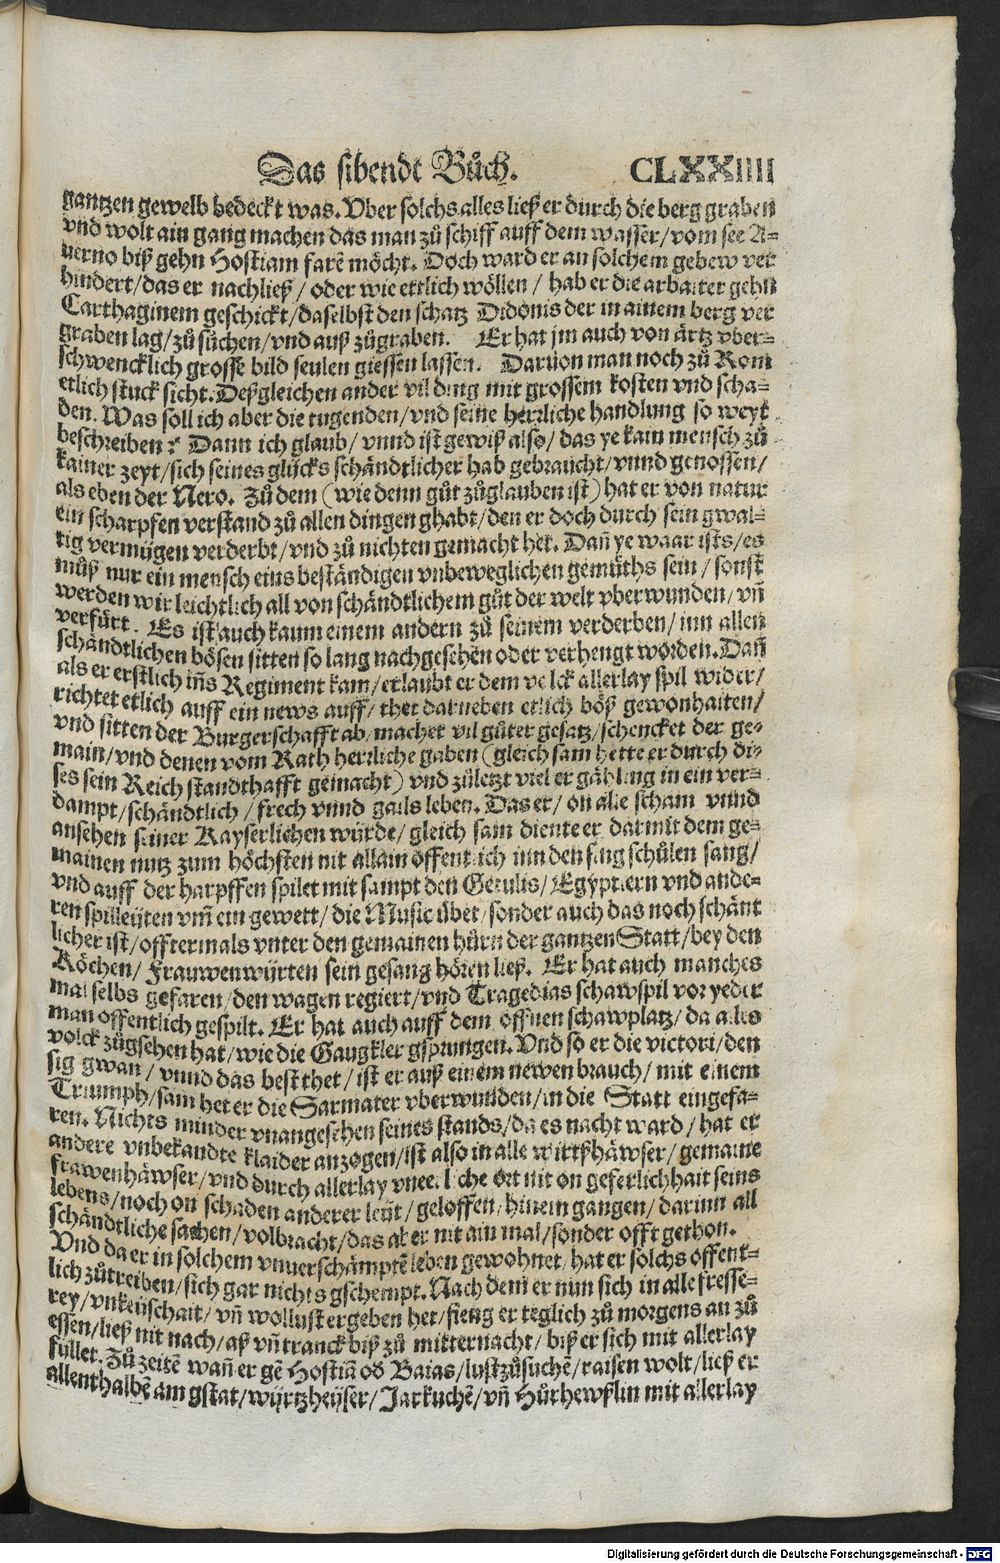 Das sibendt Bůch. CLXXIIII
gantzen gewelb bedeckt was. Vber solchs alles ließ er durch die berg graben
vnd wolt ain gang machen das man zů schiff auff dem wasser/ vom see A-
uerno biß gehn Hostiam farē möcht. Doch ward er an solchem gebew ver
hindert/ das er nachließ/ oder wie ettlich wöllen/ hab er die arbaiter gehn
Carthaginem geschickt/ daselbst den schatz Didonis der in ainem berg ver
graben lag/ zů sůchen/ vnd auß zůgraben. Er hat jm auch von ärtz vber-
schwencklich grosse bild seulen giessen lassen. Daruon man noch zů Rom
etlich stuck sicht. Deßgleichen ander vil ding mit grossem kosten vnd scha-
den. Was soll ich aber die tugenden/ vnd seine herrliche handlung so weyt
beschreiben? Dann ich glaub/ vnnd ist gewiß also/ das ye kain mensch zů
kainer zeyt/ sich seines glücks schändtlicher hab gebraucht/ vnnd genossen/
als eben der Nero. Zů dem (wie denn gůt zůglauben ist) hat er von natur
ein scharpfen verstand zů allen dingen ghabt/ den er doch durch sein gwal-
tig vermügen verderbt/ vnd zů nichten gemacht het. Dañ ye waar ists/ es
můß nur ein mensch eins beständigen vnbeweglichen gemüths sein/ sonst
werden wir leichtlich all von schändtlichem gůt der welt vberwunden/ vñ
verfürt. Es ist auch kaum einem andern zů seinem verderben/ inn allen
schändtlichen bösen sitten so lang nachgesehen oder verhengt worden. Dañ
als er erstlich iñs Regiment kam/ erlaubt er dem volck allerlay spil wider/
richtet etlich auff ein news auff/ thet darneben etlich böß gewonhaiten/
vnd sitten der Burgerschafft ab/ machet vil gůter gesatz/ schencket der ge-
main/ vnd denen vom Rath herrliche gaben (gleich sam hette er durch di-
ses sein Reich standthafft gemacht) vnd zůletzt viel er gähling in ein ver-
dampt/ schändtlich/ frech vnnd gails leben. Das er/ on alle scham vnnd
ansehen seiner Kayserlichen würde/ gleich sam diente er darmit dem ge-
mainen nutz zum höchsten nit allain öffentlich inn den sing schůlen sang/
vnd auff der harpffen spilet mit sampt den Getulis/ Egyptiern vnd ande-
ren spilleüten vm̃ ein gewett/ die Music übet/ sonder auch das noch schänt
licher ist/ offtermals vnter den gemainen hůrn der gantzen Statt/ bey den
Köchen/ Frauwenwürten sein gesang hören ließ. Er hat auch manches
mal selbs gefaren/ den wagen regiert/ vnd Tragedias schawspil vor yeder
man offentlich gespilt. Er hat auch auff dem öffnen schawplatz/ da alles
volck zůgsehen hat/ wie die Gaugkler gsprungen. Vnd so er die victori/ den
sig gwan/ vnnd das best thet/ ist er auß einem newen brauch/ mit einem
Triumph/ sam het er die Sarmater vberwunden/ in die Statt eingefa-
ren. Nichts minder vnangesehen seines stands/ da es nacht ward/ hat er
andere vnbekandte klaider anzogen/ ist also in alle wirtßhäwser/ gemaine
frawenhäwser/ vnd durch allerlay vneerliche ort nit on geferlichhait seins
lebens/ noch on schaden anderer leüt/ geloffen/ hinein gangen/ darinn all
schändtliche sachen/ volbracht/ das aber nit ain mal/ sonder offt gethon.
Vnd da er in solchem vnuerschämptē leben gewohnet/ hat er solchs öffent-
lich zůtreiben/ sich gar nichts gschempt. Nach dem er nun sich in alle fresse-
rey/ vnkeüschait/ vñ wollust ergeben het/ fieng er teglich zů morgens an zů
essen/ ließ nit nach/ aß vñ tranck biß zů mitternacht/ biß er sich mit allerlay
füllet. Zů zeitē wañ er gē Hostiā od Baias/ lustzůsuchē/ raisen wolt/ ließ er
allenthalbē am gstat/ würtzheüser/ Jarkuchē/ vñ Hůrhewßlin mit allerlay
Digitalisierung gefördert durch die Deutsche Forschungsgemeinschaft - DFG